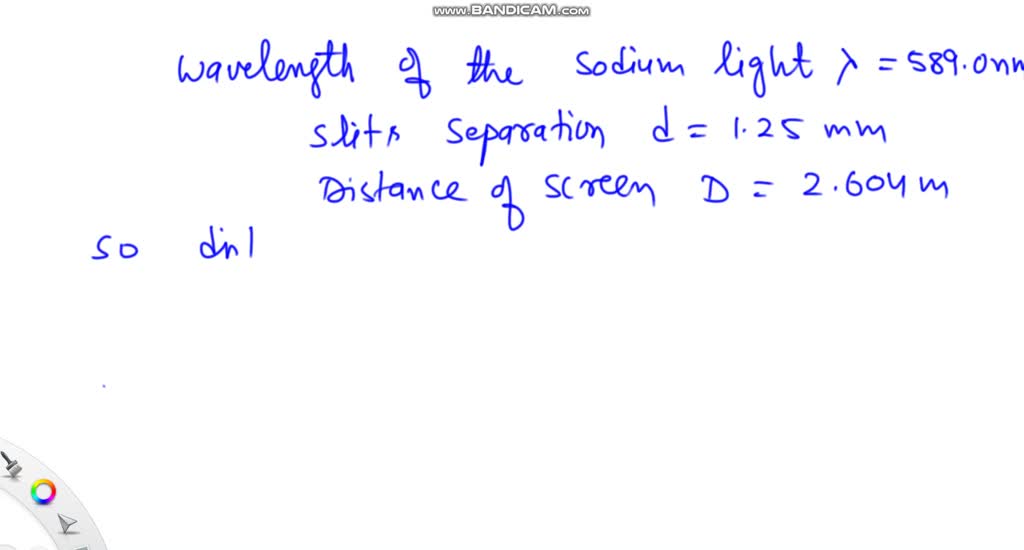 www.BANDICAM.com
wavelength of the sodium light λ = 589.0nm
slits separation d = 1.25 mm
Distance of screen D = 2.604 m
so